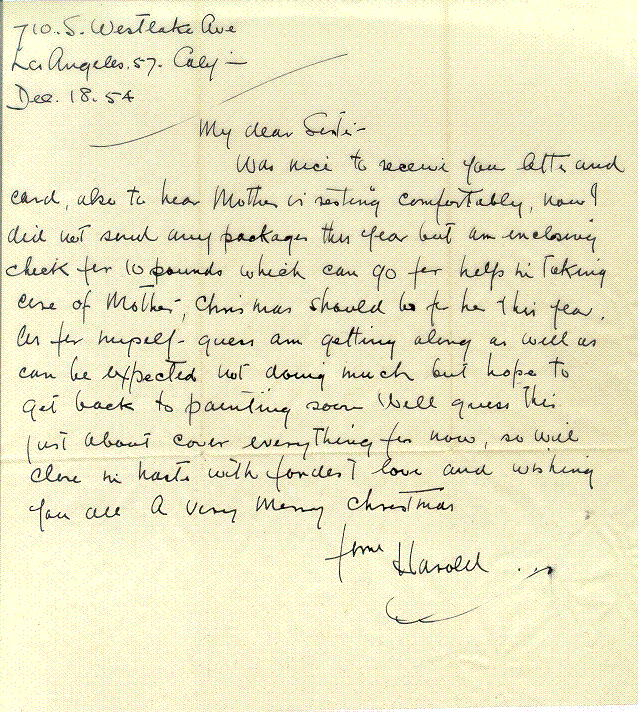 710. S. Westlake Ave
Los Angeles. 57. Calif -
Dec. 18. 54
My dear Sister -
Was nice to receive your letter and
card, also to hear Mother is resting comfortably, now I
did not send any packages this year but am enclosing
check for 10 pounds which can go for helps in taking
care of Mother, Christmas should be for her this year.
As for myself - guess am getting along as well as
can be expected not doing much but hope to
get back to painting soon Well guess this
just about cover everything for now, so will
close in haste with fondest love and wishing
you all a very merry christmas
from Harold